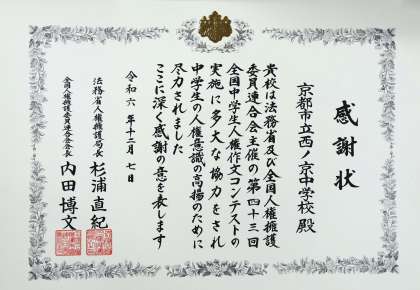 感謝状
京都市立西ノ京中学校 殿
貴校は法務省及び全国人権擁護
委員連合会主催の第四十三回
全国中学生人権作文コンテストの
実施に多大な協力をされ
中学生の人権意識の高揚のために
尽力されました
ここに深く感謝の意を表します
令和六年十二月七日
法務省人権擁護局長 杉浦直紀
全国人権擁護委員連合会会長 内田博文